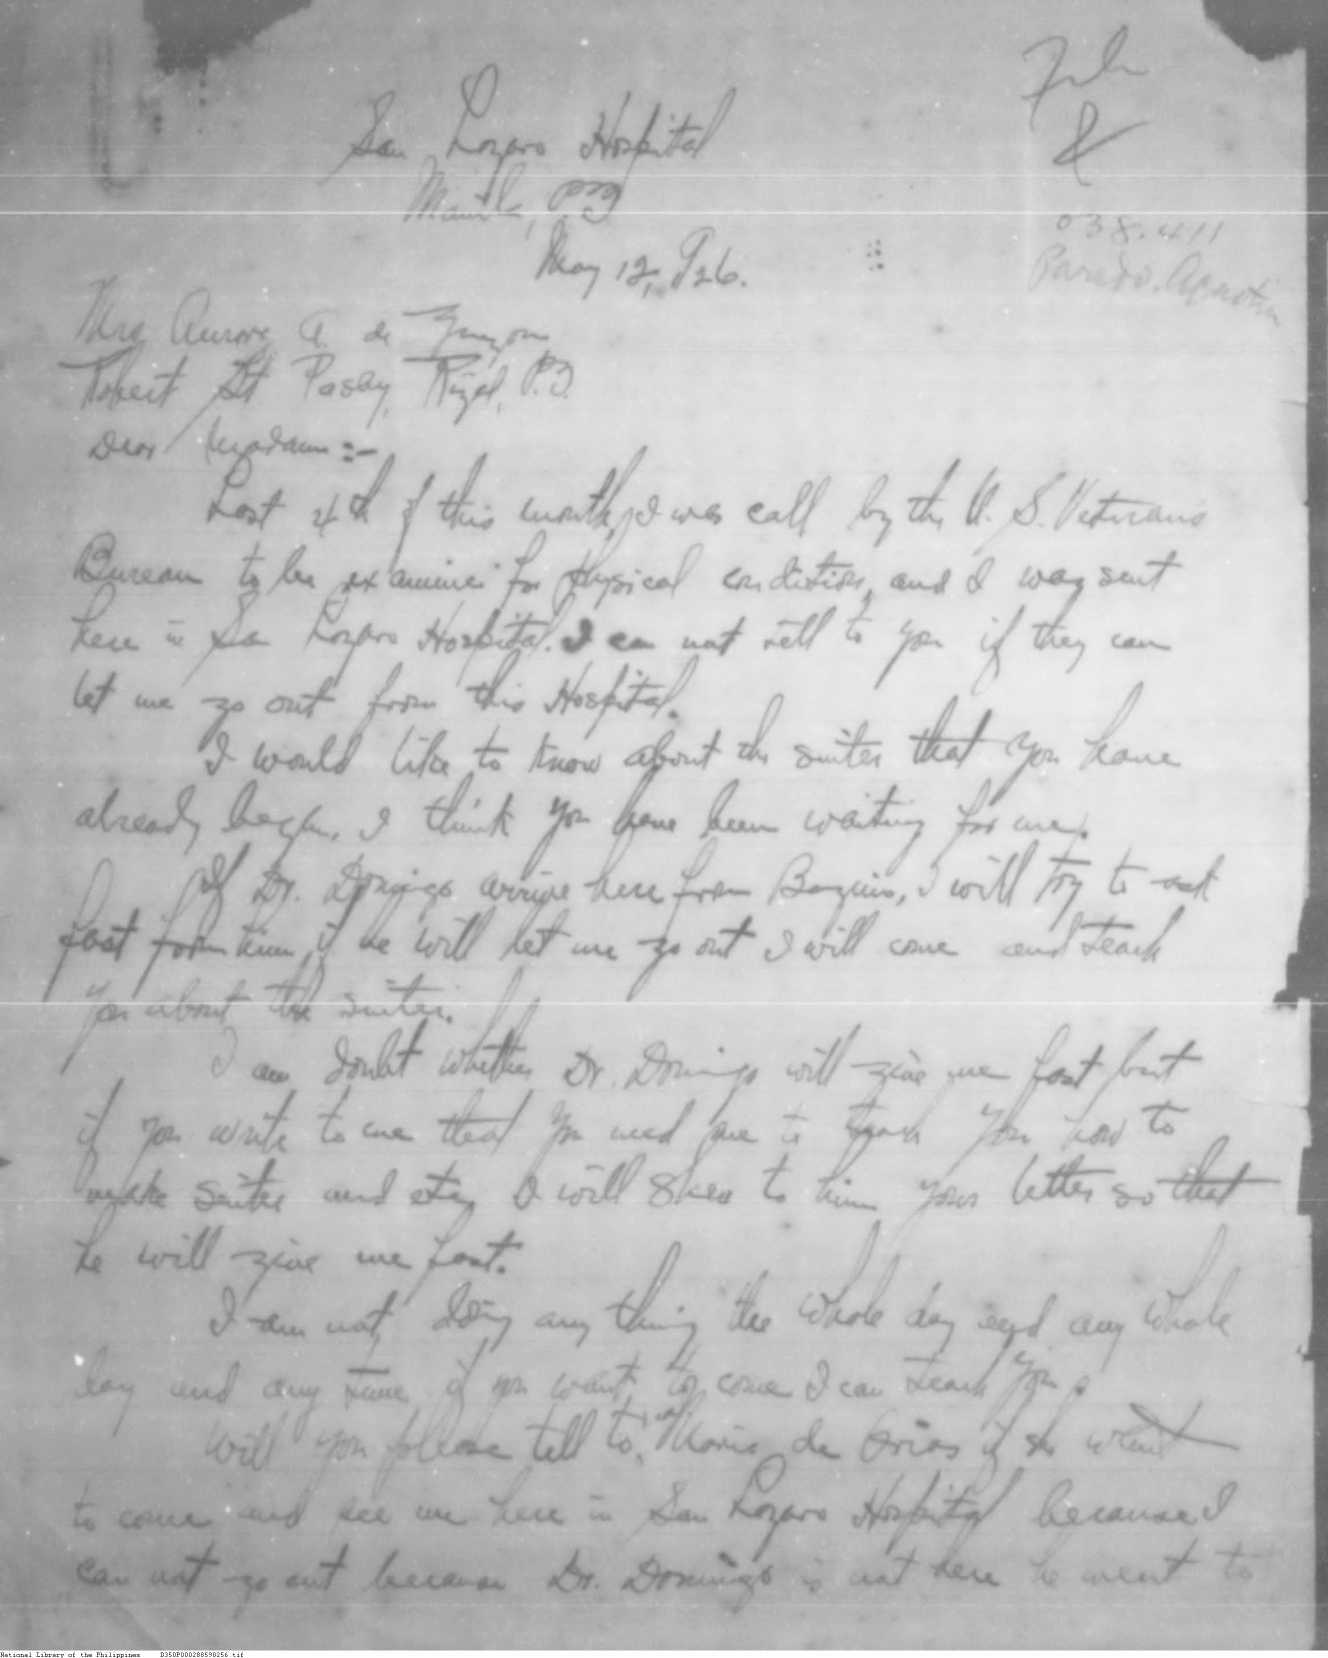 File
San Lazaro Hospital
Manila, P.I.
May 12, 926.
038.411
Paredo, Agustin
Mrs Aurora A. de
Robert St Pasay, Rizal, P.I.
Dear Madam :-
Last 4th of this month, I was call by the U. S. Veterans
Bureau to be examine for physical condition, and I was sent
here in San Lazaro Hospital. I can not tell to you if they can
let me go out from this Hospital.
I would like to know about the suiter that you have
already begun. I think you have been waiting for me.
If Dr. Domingo arrive here from Baguio, I will try to ask
past form him, if he will let me go out I will come and teach
you about the suiter.
I am doubt whether Dr. Domingo will give me past but
if you write to me that you need me to teach you how to
make suiter and I will shew to him your letter so that
he will give me past.
I am not doing any thing the whole day and any whole
day and any time if you want to come I can teach you.
Will you please tell to Maria de Arias if she want
to come and see me here in San Lazaro Hospital because I
can not go out because Dr. Domingo is not here he went to
National Library of the Philippines D350P000288598256.tif